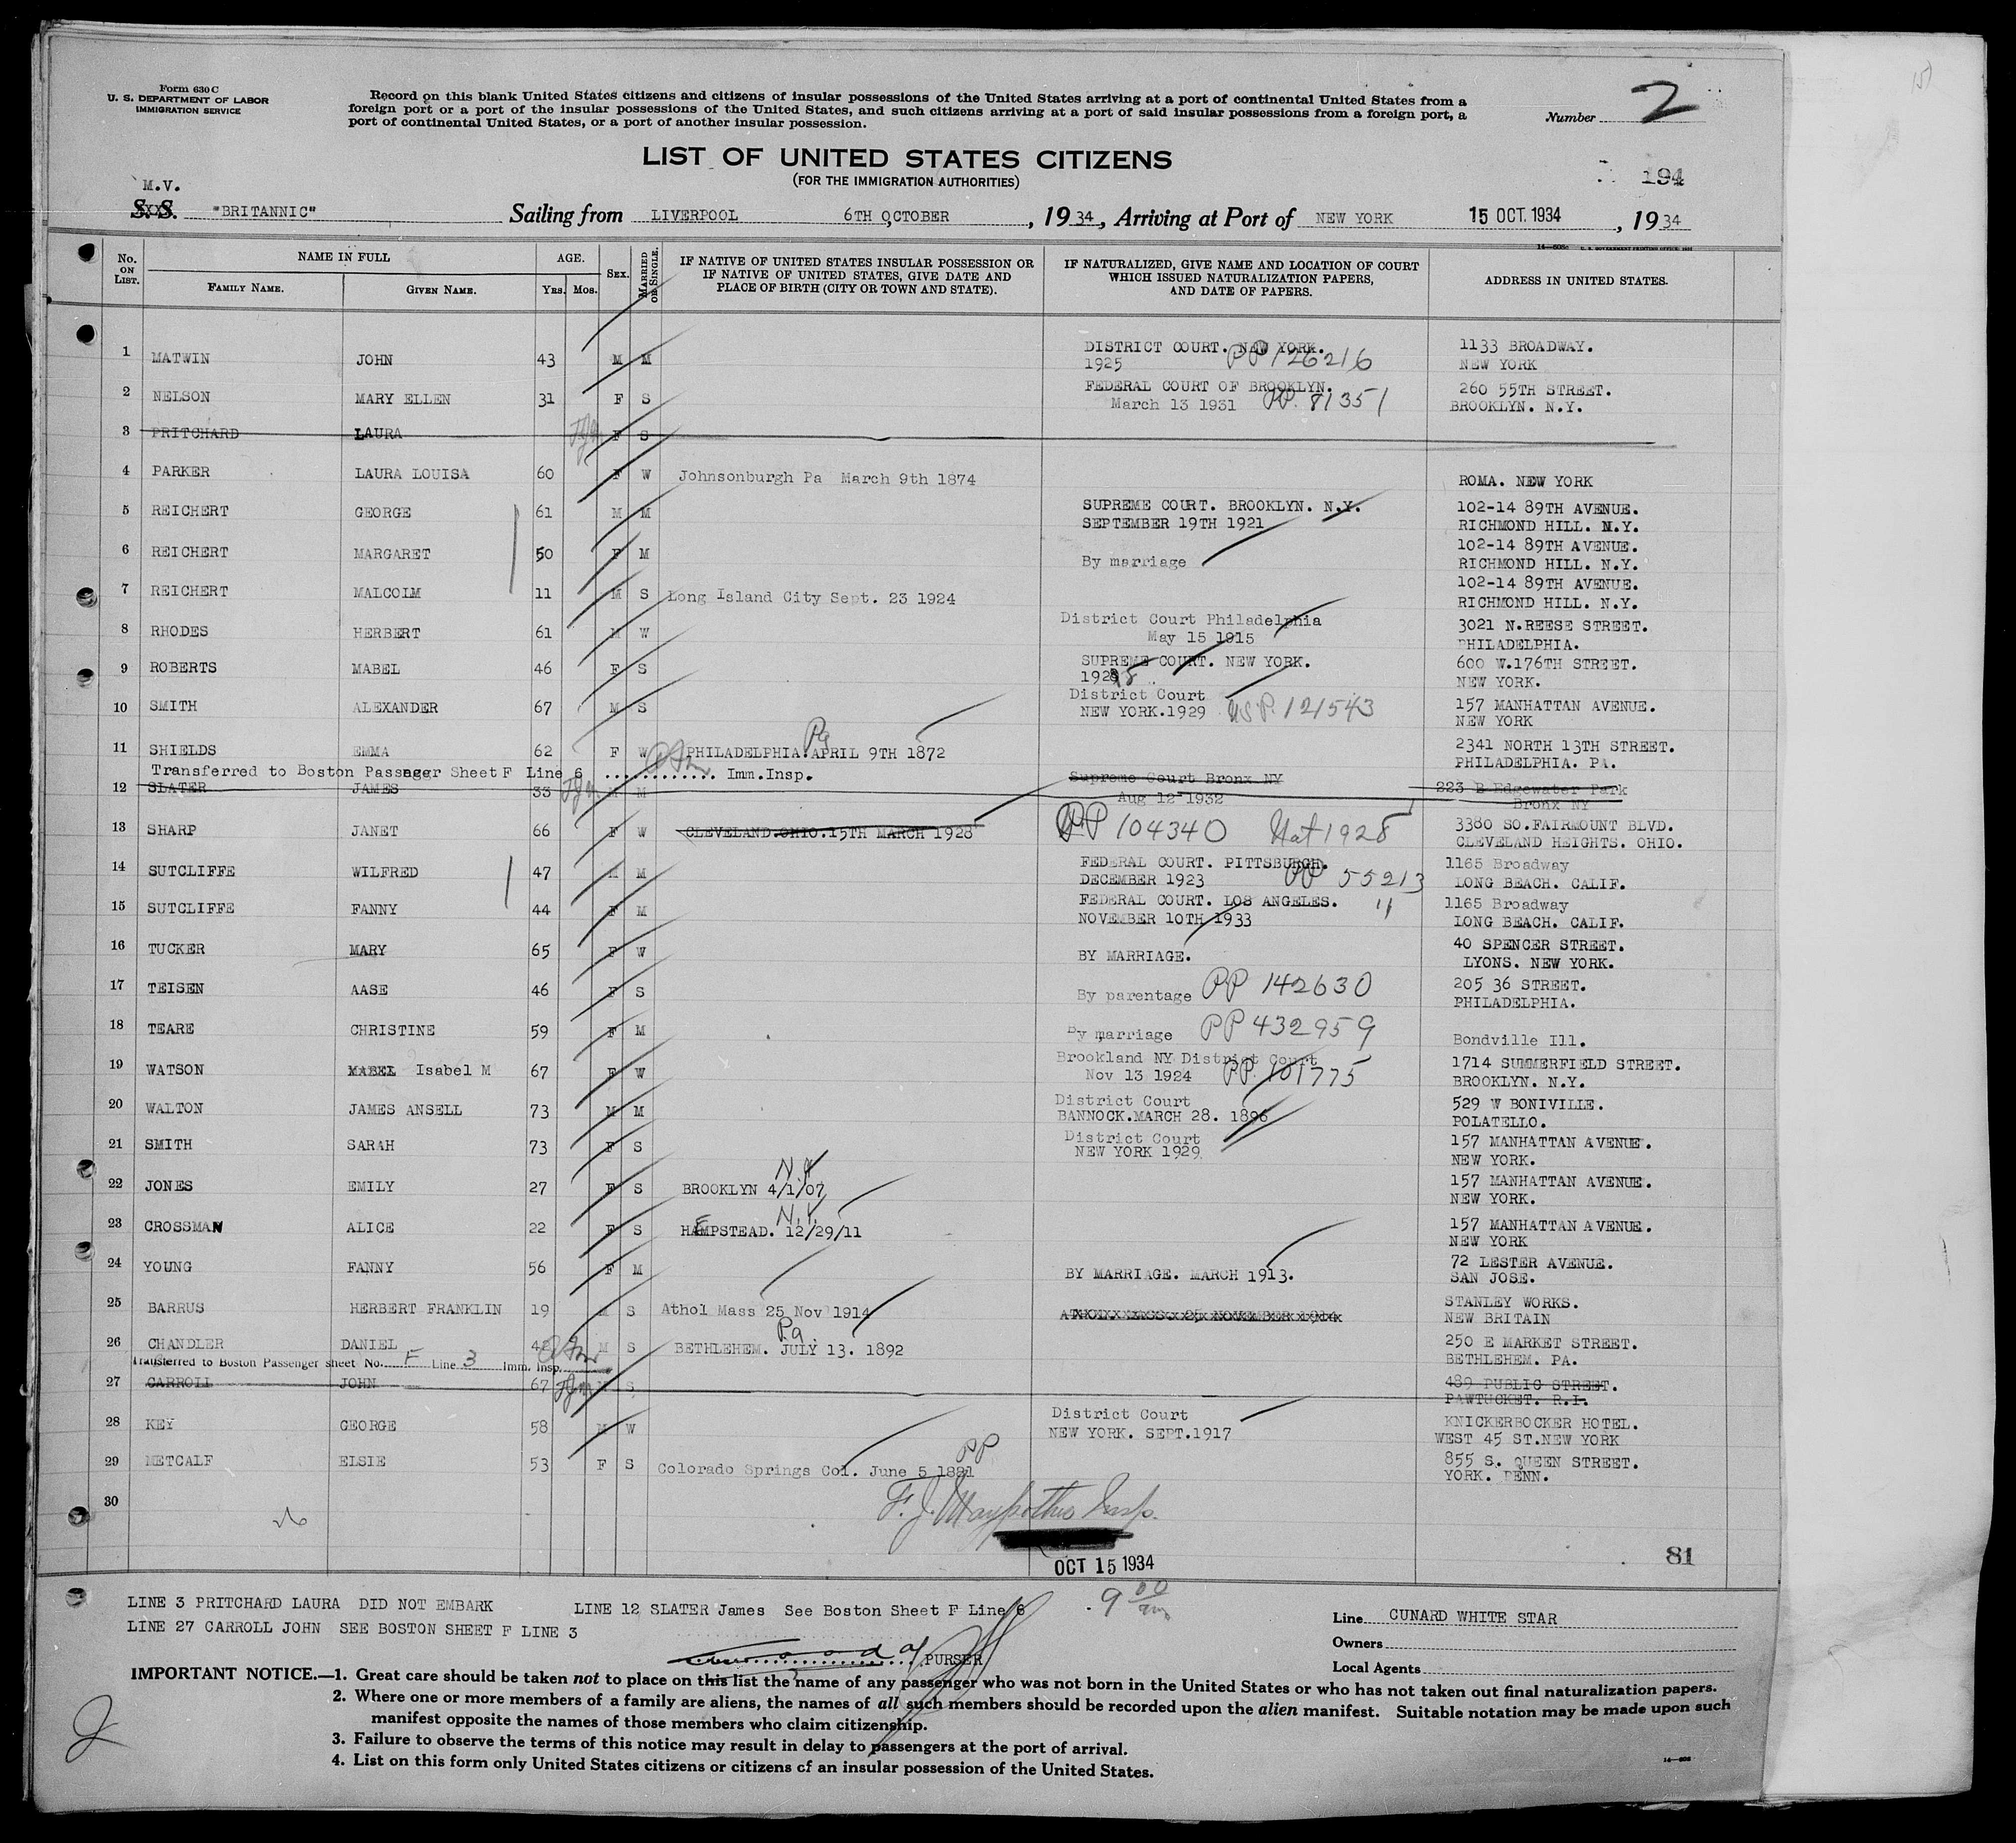 Form 630 C
U. S. DEPARTMENT OF LABOR
IMMIGRATION SERVICE
Record on this blank United States citizens and citizens of insular possessions of the United States arriving at a port of continental United States from a
foreign port or a port of the insular possessions of the United States, and such citizens arriving at a port of said insular possessions from a foreign port, a
port of continental United States, or a port of another insular possession.
Number 2
LIST OF UNITED STATES CITIZENS
(FOR THE IMMIGRATION AUTHORITIES)
194
M.V.
S. S. "BRITANNIC" Sailing from LIVERPOOL 6TH OCTOBER, 1934, Arriving at Port of NEW YORK 15 OCT. 1934, 1934
No. ON LIST. NAME IN FULL FAMILY NAME. GIVEN NAME. AGE. YRS. MOS. SEX. MARRIED OR SINGLE. IF NATIVE OF UNITED STATES INSULAR POSSESSION OR IF NATIVE OF UNITED STATES, GIVE DATE AND PLACE OF BIRTH (CITY OR TOWN AND STATE). IF NATURALIZED, GIVE NAME AND LOCATION OF COURT WHICH ISSUED NATURALIZATION PAPERS, AND DATE OF PAPERS. ADDRESS IN UNITED STATES.
1 MATWIN JOHN 43 M M DISTRICT COURT. NEW YORK. 1925 PP 126216 1133 BROADWAY. NEW YORK
2 NELSON MARY ELLEN 31 F S FEDERAL COURT OF BROOKLYN. March 13 1931 PP. 81351 260 55TH STREET. BROOKLYN. N.Y.
3 PRITCHARD LAURA F S
4 PARKER LAURA LOUISA 60 F W Johnsonburgh Pa March 9th 1874 ROMA. NEW YORK
5 REICHERT GEORGE 61 M M SUPREME COURT. BROOKLYN. N.Y. SEPTEMBER 19TH 1921 102-14 89TH AVENUE. RICHMOND HILL. N.Y.
6 REICHERT MARGARET 50 F M By marriage 102-14 89TH AVENUE. RICHMOND HILL. N.Y.
7 REICHERT MALCOLM 11 M S Long Island City Sept. 23 1924 102-14 89TH AVENUE. RICHMOND HILL. N.Y.
8 RHODES HERBERT 61 M W District Court Philadelphia May 15 1915 3021 N.REESE STREET. PHILADELPHIA.
9 ROBERTS MABEL 46 F S SUPREME COURT. NEW YORK. 1928 600 W.176TH STREET. NEW YORK.
10 SMITH ALEXANDER 67 M S District Court NEW YORK.1929 USP. 121543 157 MANHATTAN AVENUE. NEW YORK
11 SHIELDS EMMA 62 F W PHILADELPHIA. Pa APRIL 9TH 1872 2341 NORTH 13TH STREET. PHILADELPHIA. PA.
Transferred to Boston Passenger Sheet F Line 6 ............ Imm.Insp.
12 SLATER JAMES 33 M M Supreme Court Bronx NY Aug 12 1932 223 B Edgewater Park Bronx NY
13 SHARP JANET 66 F W CLEVELAND.OHIO.15TH MARCH 1928 PP 104340 Nat 1928 3380 SO.FAIRMOUNT BLVD. CLEVELAND HEIGHTS. OHIO.
14 SUTCLIFFE WILFRED 47 M M FEDERAL COURT. PITTSBURGH. DECEMBER 1923 PP 55213 1165 Broadway LONG BEACH. CALIF.
15 SUTCLIFFE FANNY 44 F M FEDERAL COURT. LOS ANGELES. " NOVEMBER 10TH 1933 1165 Broadway LONG BEACH. CALIF.
16 TUCKER MARY 65 F W BY MARRIAGE. 40 SPENCER STREET. LYONS. NEW YORK.
17 TEISEN AASE 46 F S By parentage PP 142630 205 36 STREET. PHILADELPHIA.
18 TEARE CHRISTINE 59 F M By marriage PP 432959 Bondville Ill.
19 WATSON MABEL Isabel M 67 F W Brookland NY District Court Nov 13 1924 PP. 101775 1714 SUMMERFIELD STREET. BROOKLYN. N.Y.
20 WALTON JAMES ANSELL 73 M M District Court BANNOCK.MARCH 28. 1896 529 W BONIVILLE. POLATELLO.
21 SMITH SARAH 73 F S District Court NEW YORK 1929 157 MANHATTAN AVENUE. NEW YORK.
22 JONES EMILY 27 F S BROOKLYN N.Y 4/1/07 157 MANHATTAN AVENUE. NEW YORK.
23 CROSSMAN ALICE 22 F S HEMPSTEAD. N.Y. 12/29/11 157 MANHATTAN AVENUE. NEW YORK
24 YOUNG FANNY 56 F M BY MARRIAGE. MARCH 1913. 72 LESTER AVENUE. SAN JOSE.
25 BARRUS HERBERT FRANKLIN 19 M S Athol Mass 25 Nov 1914 STANLEY WORKS. NEW BRITAIN
26 CHANDLER DANIEL 42 M S BETHLEHEM. Pa. JULY 13. 1892 250 E MARKET STREET. BETHLEHEM. PA.
Transferred to Boston Passenger sheet No. F Line 3 Imm. Insp.
27 CARROLL JOHN 67 M S 489 PUBLIC STREET. PAWTUCKET. R.I.
28 KEY GEORGE 58 M W District Court NEW YORK. SEPT.1917 KNICKERBOCKER HOTEL. WEST 45 ST.NEW YORK
29 METCALF ELSIE 53 F S Colorado Springs Col. June 5 1881 PP 855 S. QUEEN STREET. YORK. PENN.
30
OCT 15 1934
81
9 00 am
LINE 3 PRITCHARD LAURA DID NOT EMBARK LINE 12 SLATER James See Boston Sheet F Line 6
LINE 27 CARROLL JOHN SEE BOSTON SHEET F LINE 3
PURSER
Line CUNARD WHITE STAR
Owners
Local Agents
IMPORTANT NOTICE.—1. Great care should be taken not to place on this list the name of any passenger who was not born in the United States or who has not taken out final naturalization papers.
2. Where one or more members of a family are aliens, the names of all such members should be recorded upon the alien manifest. Suitable notation may be made upon such
manifest opposite the names of those members who claim citizenship.
3. Failure to observe the terms of this notice may result in delay to passengers at the port of arrival.
4. List on this form only United States citizens or citizens of an insular possession of the United States.
2